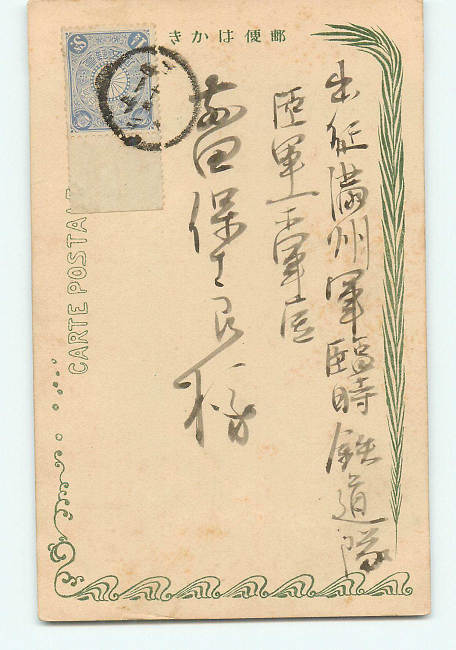 郵便はかき
出征満州軍臨時鉄道隊
陸軍一等軍医
田保良様
CARTE POSTALE